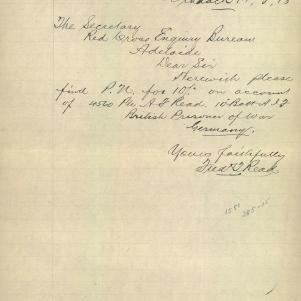 The Secretary
Red Cross Enquiry Bureau
Adelaide
Dear Sir
Herewith please
find P.N. for 10/- on account
of 4560 Pte A G Read. 10 Batt A.I.F
British Prisoner of War
Germany.
Yours faithfully
Fred G Read